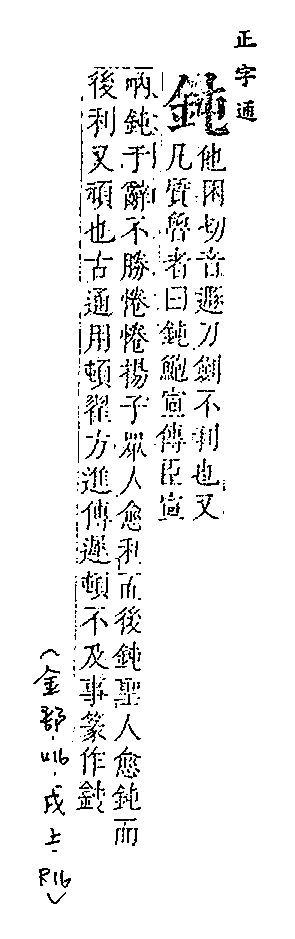 正字通
鈍
他困切音遯刀劍不利也又
凡質魯者曰鈍鮑宣傳臣宣
吶鈍于辭不勝惓惓揚子眾人愈利而後鈍聖人愈鈍而
後利又頑也古通用頓翟方進傳遲頓不及事篆作鈍
(金部.416.戌上.P16)